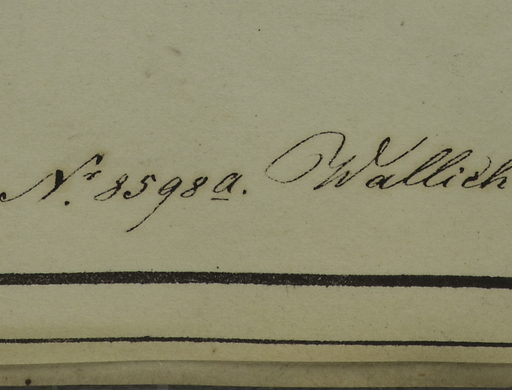 Nr. 8598a. Wallich